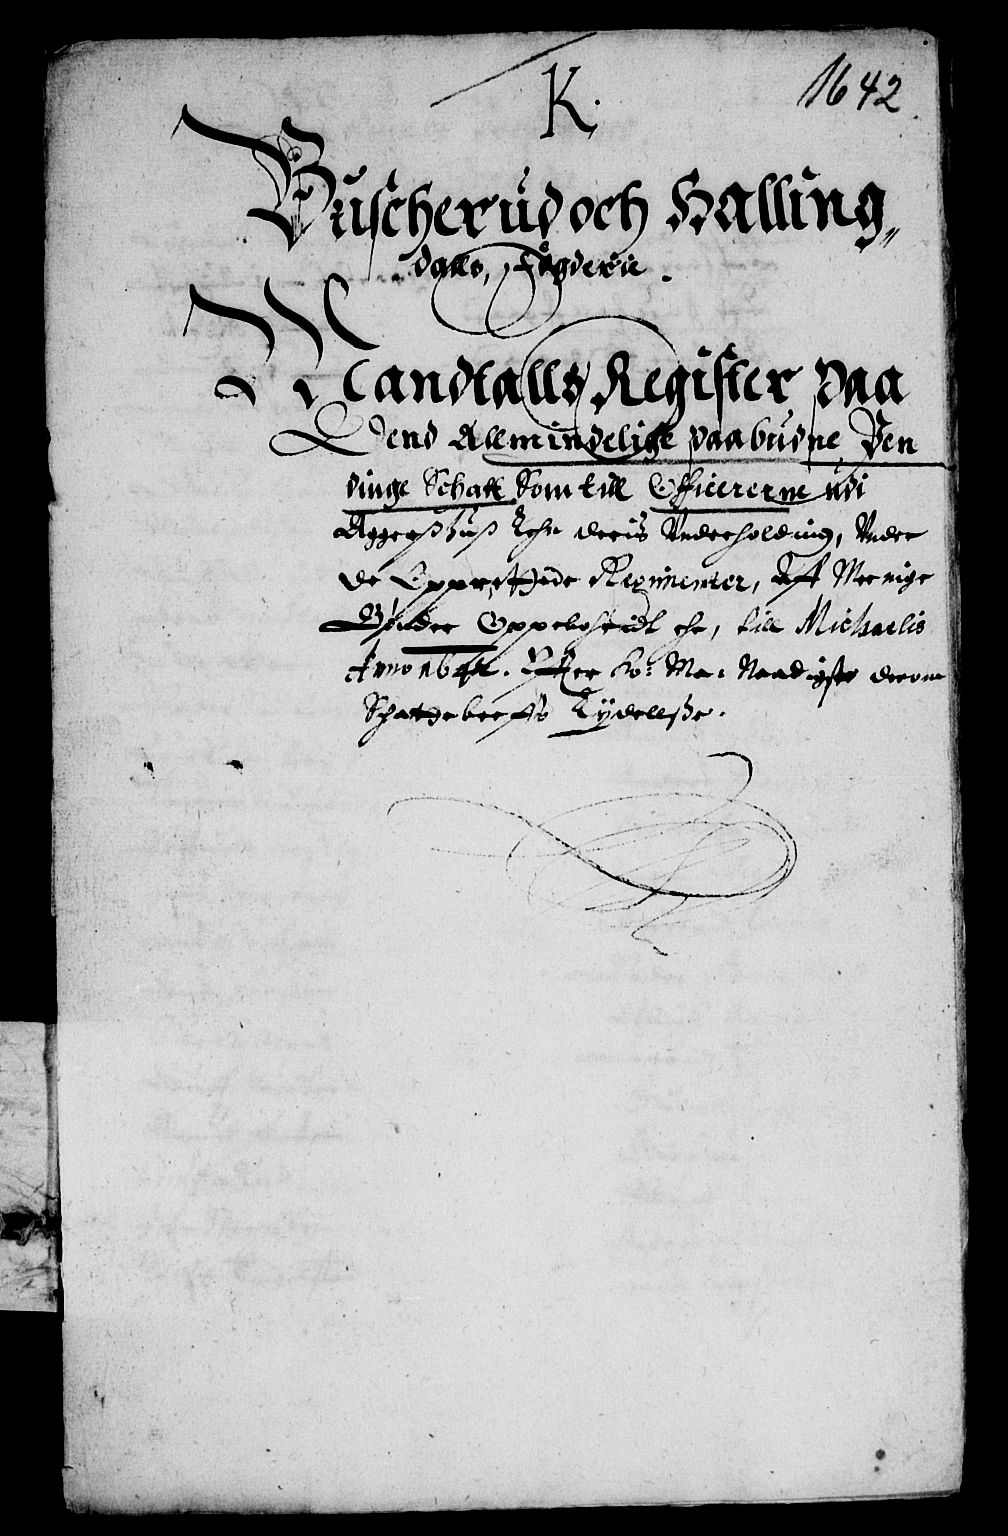 K.
1642
Buscherud och Halling„
dalls, Fogderie.
Mandtalls Register paa
Dend Allmindelige paabudne Pen
dinge Schatt Som till Officererne udi
Aggerßhuß Lehn deris Underholding, Under
de Opprettede Regimenter, Aff Menige
Bønder Oppeboheidt ehr, till Michaelis
Anno 1642. Efter Ko: Ma: Naadigste derom
Schattebreffs Lydellße.